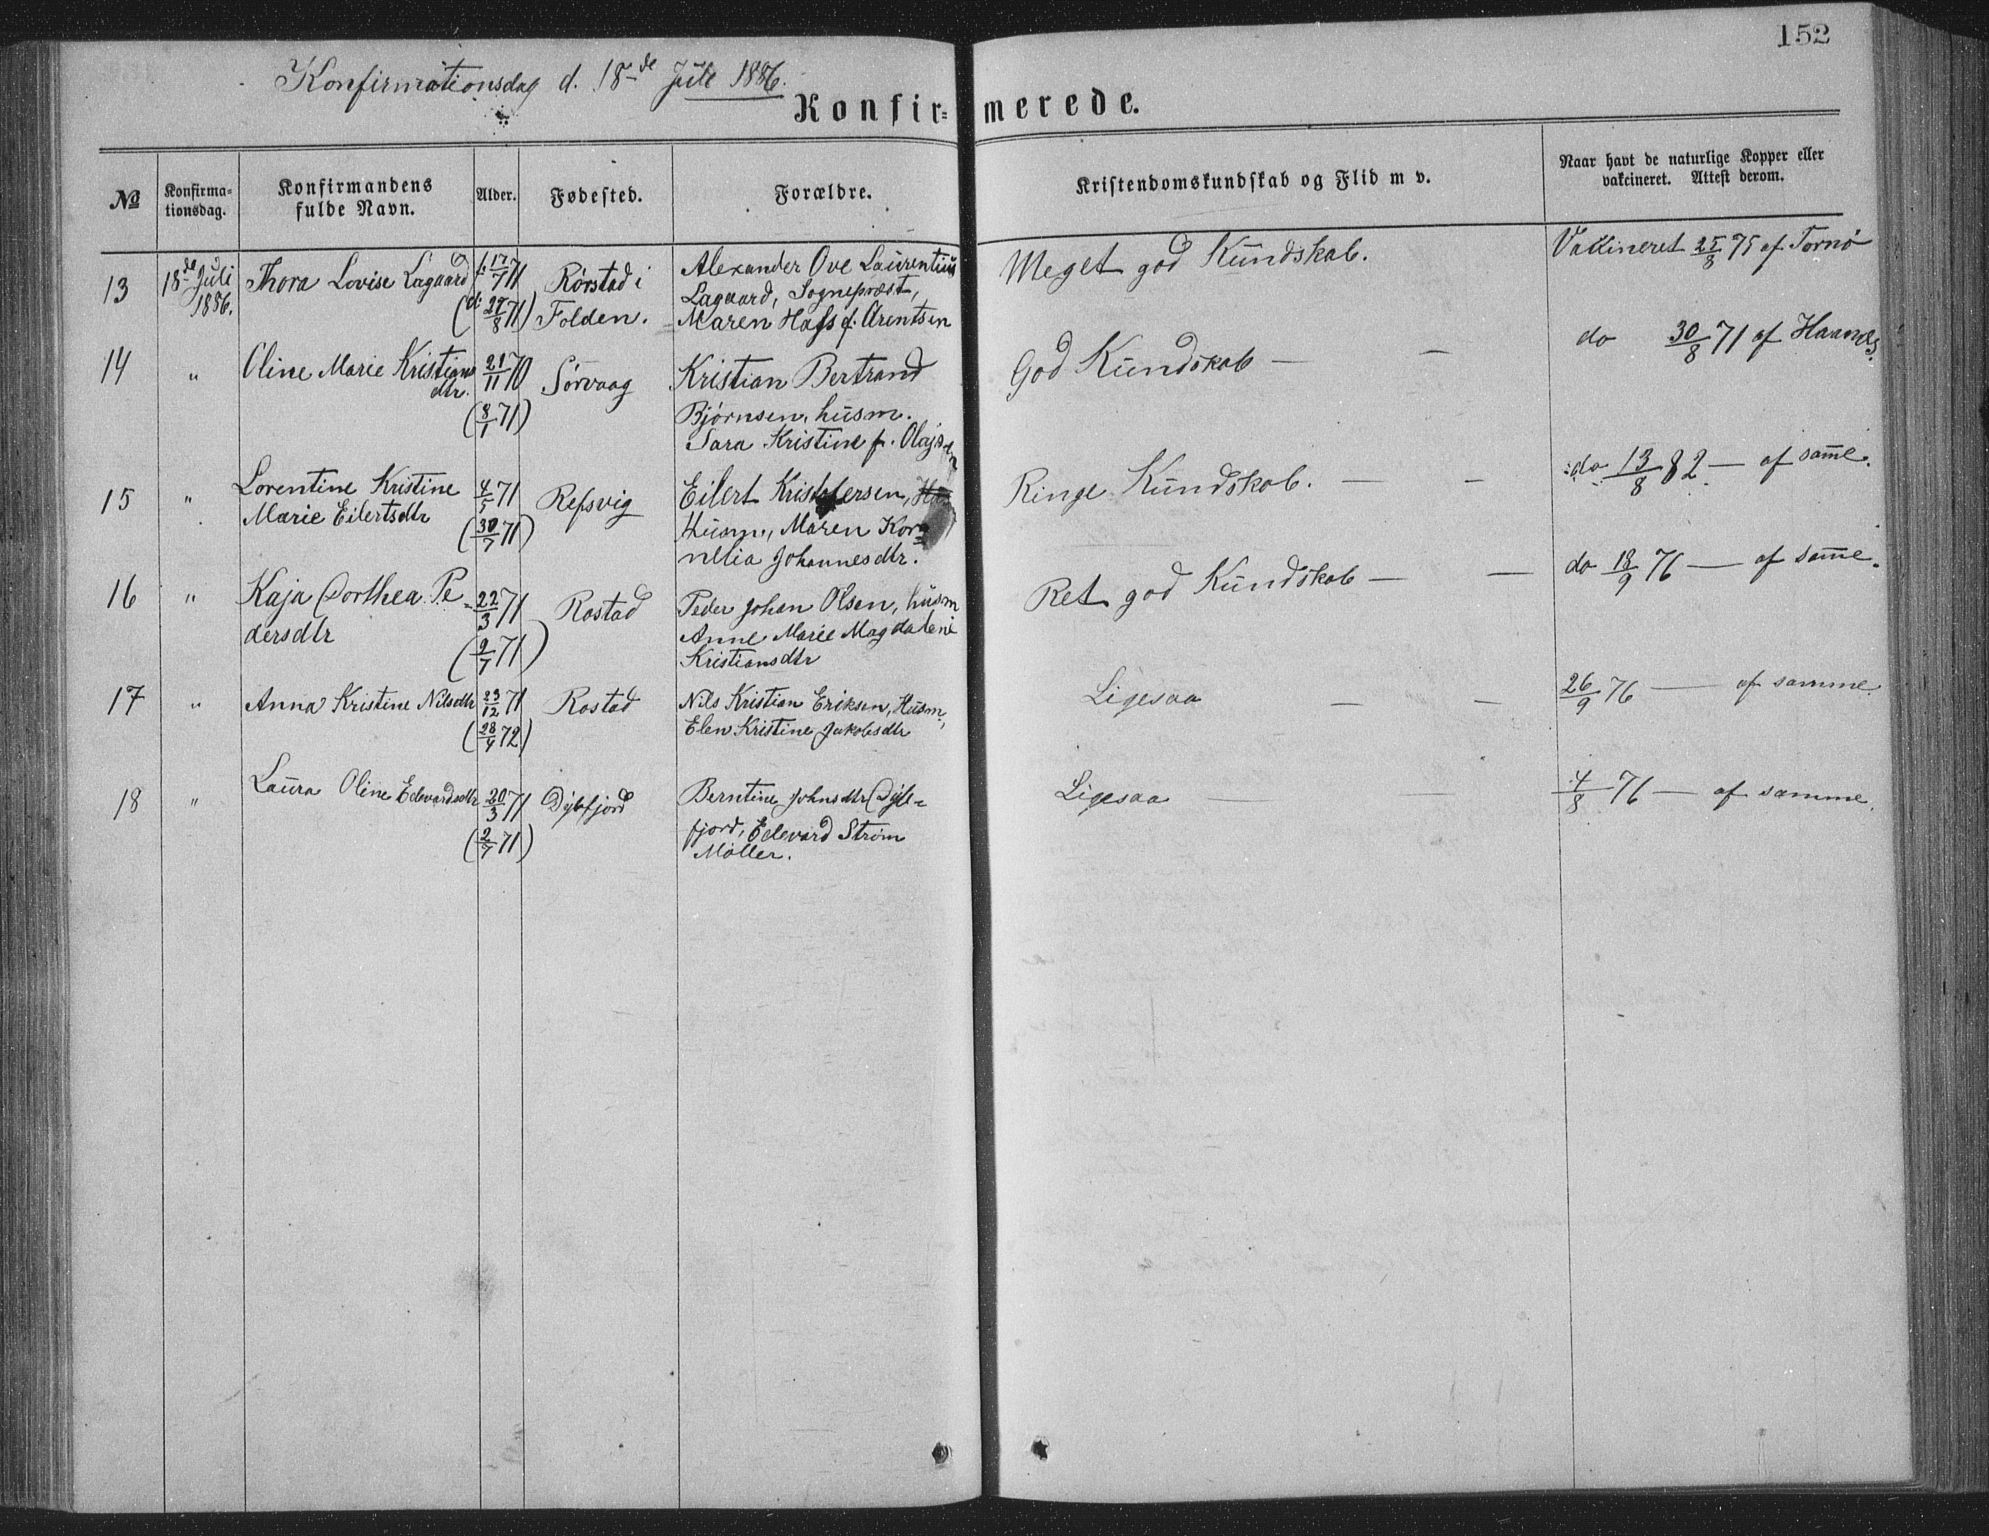 152
Konfirmationsdag d. 18de Juli 1886.
Konfir= merede.
No
Konfirma=
tionsdag.
Konfirmandens
fulde Navn.
Alder.
Fødested.
Forældre.
Kristendomskundskab og Flid m v.
Naar havt de naturlige Kopper eller
vakcineret. Attest derom.
13 18de Juli Thora Lovise Lagaard f: 17/7 71 Rørstad i Alexander Ove Laurentius Meget god Kundskab. Vakcineret 25/8 75 af Tornø
1886. (d: 27/8 71) Folden. Lagaard, Sognepræst,
Maren Hass f: Arentsen
14 " Oline Marie Kristians 21/11 70 Sørvaag Kristian Bertrand God Kundskab — — do 30/8 71 af Haanes.
dtr. (8/1 71) Bjørnsen, husm.
Sara Kristine f. Olajsdn
15 " Lorentine Kristine 4/5 71 Refsvig Eilert Kristofersen, Ringe Kundskab. — — do 13/8 82 — af samme.
Marie Eilertsdtr (30/7 71) Husm, Maren Kor=
nelia Johannesdtr.
16 " Kaja Dorthea Pe= 22/3 71 Rostad Peder Johan Olsen, husm Ret god Kundskab — — do 18/9 76 — af samme.
dersdtr (2/7 71) Anne Marie Magdalene
Kristiansdtr
17 " Anna Kristine Nilsdtr 23/12 71 Rostad Nils Kristian Eriksen, Husm, Ligesaa — — 26/9 76 — af samme
(28/4 72) Elen Kristine Jakobsdtr
18 " Laura Oline Edevardsdtr 20/3 71 Djtefjord Berntine Johnsdtr Djte= Ligesaa — — 4/8 76 — af samme.
(2/7 71) fjord, Edevard Strøm
Møller.